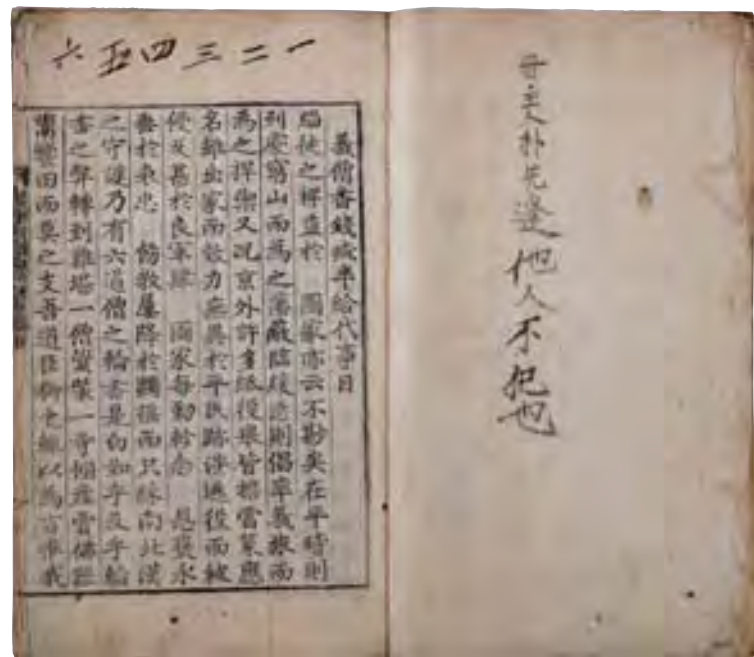 冊主人朴先達他人不犯也
一二三四五六
義僧番錢减半給代事目
緇徒之裨益於 國家亦云不尠矣在平時則
列處窮山而爲之藩蔽臨緩急則倡率義旅而
爲之捍禦又況京外許多紙役果皆擔當策應
名雖出家而效力無異於平民跡涉逃役而被
侵反甚於良軍肆 國家每勤軫念 恩褒永
垂於表忠 飭敎屢降於蠲損而只緣南北漢
之守護乃有六道僧之輪番是白如乎及乎輪
番之弊轉到難堪一僧資裝一寺傾産賣佛器
鬻營田而莫之支吾道臣御史繼以爲言惟我